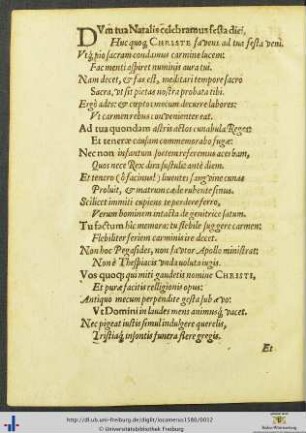 DVm tua Natalis celebramus festa diei,
Huc quoq; CHRISTE faueus ad tua festa veni.
Vtq; pio sacram condamus carmine lucem:
Fac menti aspiret numinis aura tui.
Nam decet, & fas est, meditari tempore sacro
Sacra, vt sit pietas nostra probata tibi.
Ergò ades: & cœptos mecum decurre labores:
Vt carmen rebus conueniens eat.
Ad tua quondam astris actos cunabula Reges:
Et teneræ causam commemorabo fugæ:
Nec non infantum sortem referemus acerbam,
Quos nece Rex dira sustulit antè diem.
Et tenero (ô facinus!) lactentes sanguine cunas
Proluit, & matrum cæde rubente sinus.
Scilicet immiti cupiens te perdere ferro,
Verum hominem intacta de genitrice satum.
Tu factum hic memora: tu flebile suggere carmen:
Flebiliter seriem carminis ire decet.
Non hoc Pegasides, non fautor Apollo ministrat:
Non è Thespiacis vnda voluta iugis.
Vos quoq; qui miti gaudetis nomine CHRISTI,
Et puræ facitis relligionis opus:
Antiquo mecum perpendite gesta sub æuo:
Vt Domini in laudes mens animusq; vacet.
Nec pigeat iustis simul indulgere querelis,
Tristiaq; insontis funera flere gregis.
Et
http://dl.ub.uni-freiburg.de/diglit/iocomerus1586/0012
© Universitätsbibliothek Freiburg
Baden-Württemberg